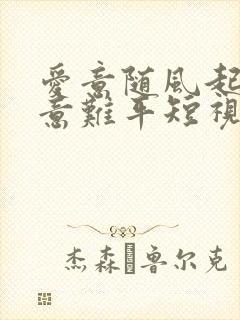 愛意随风起
意難平短視
杰森·鲁尔克